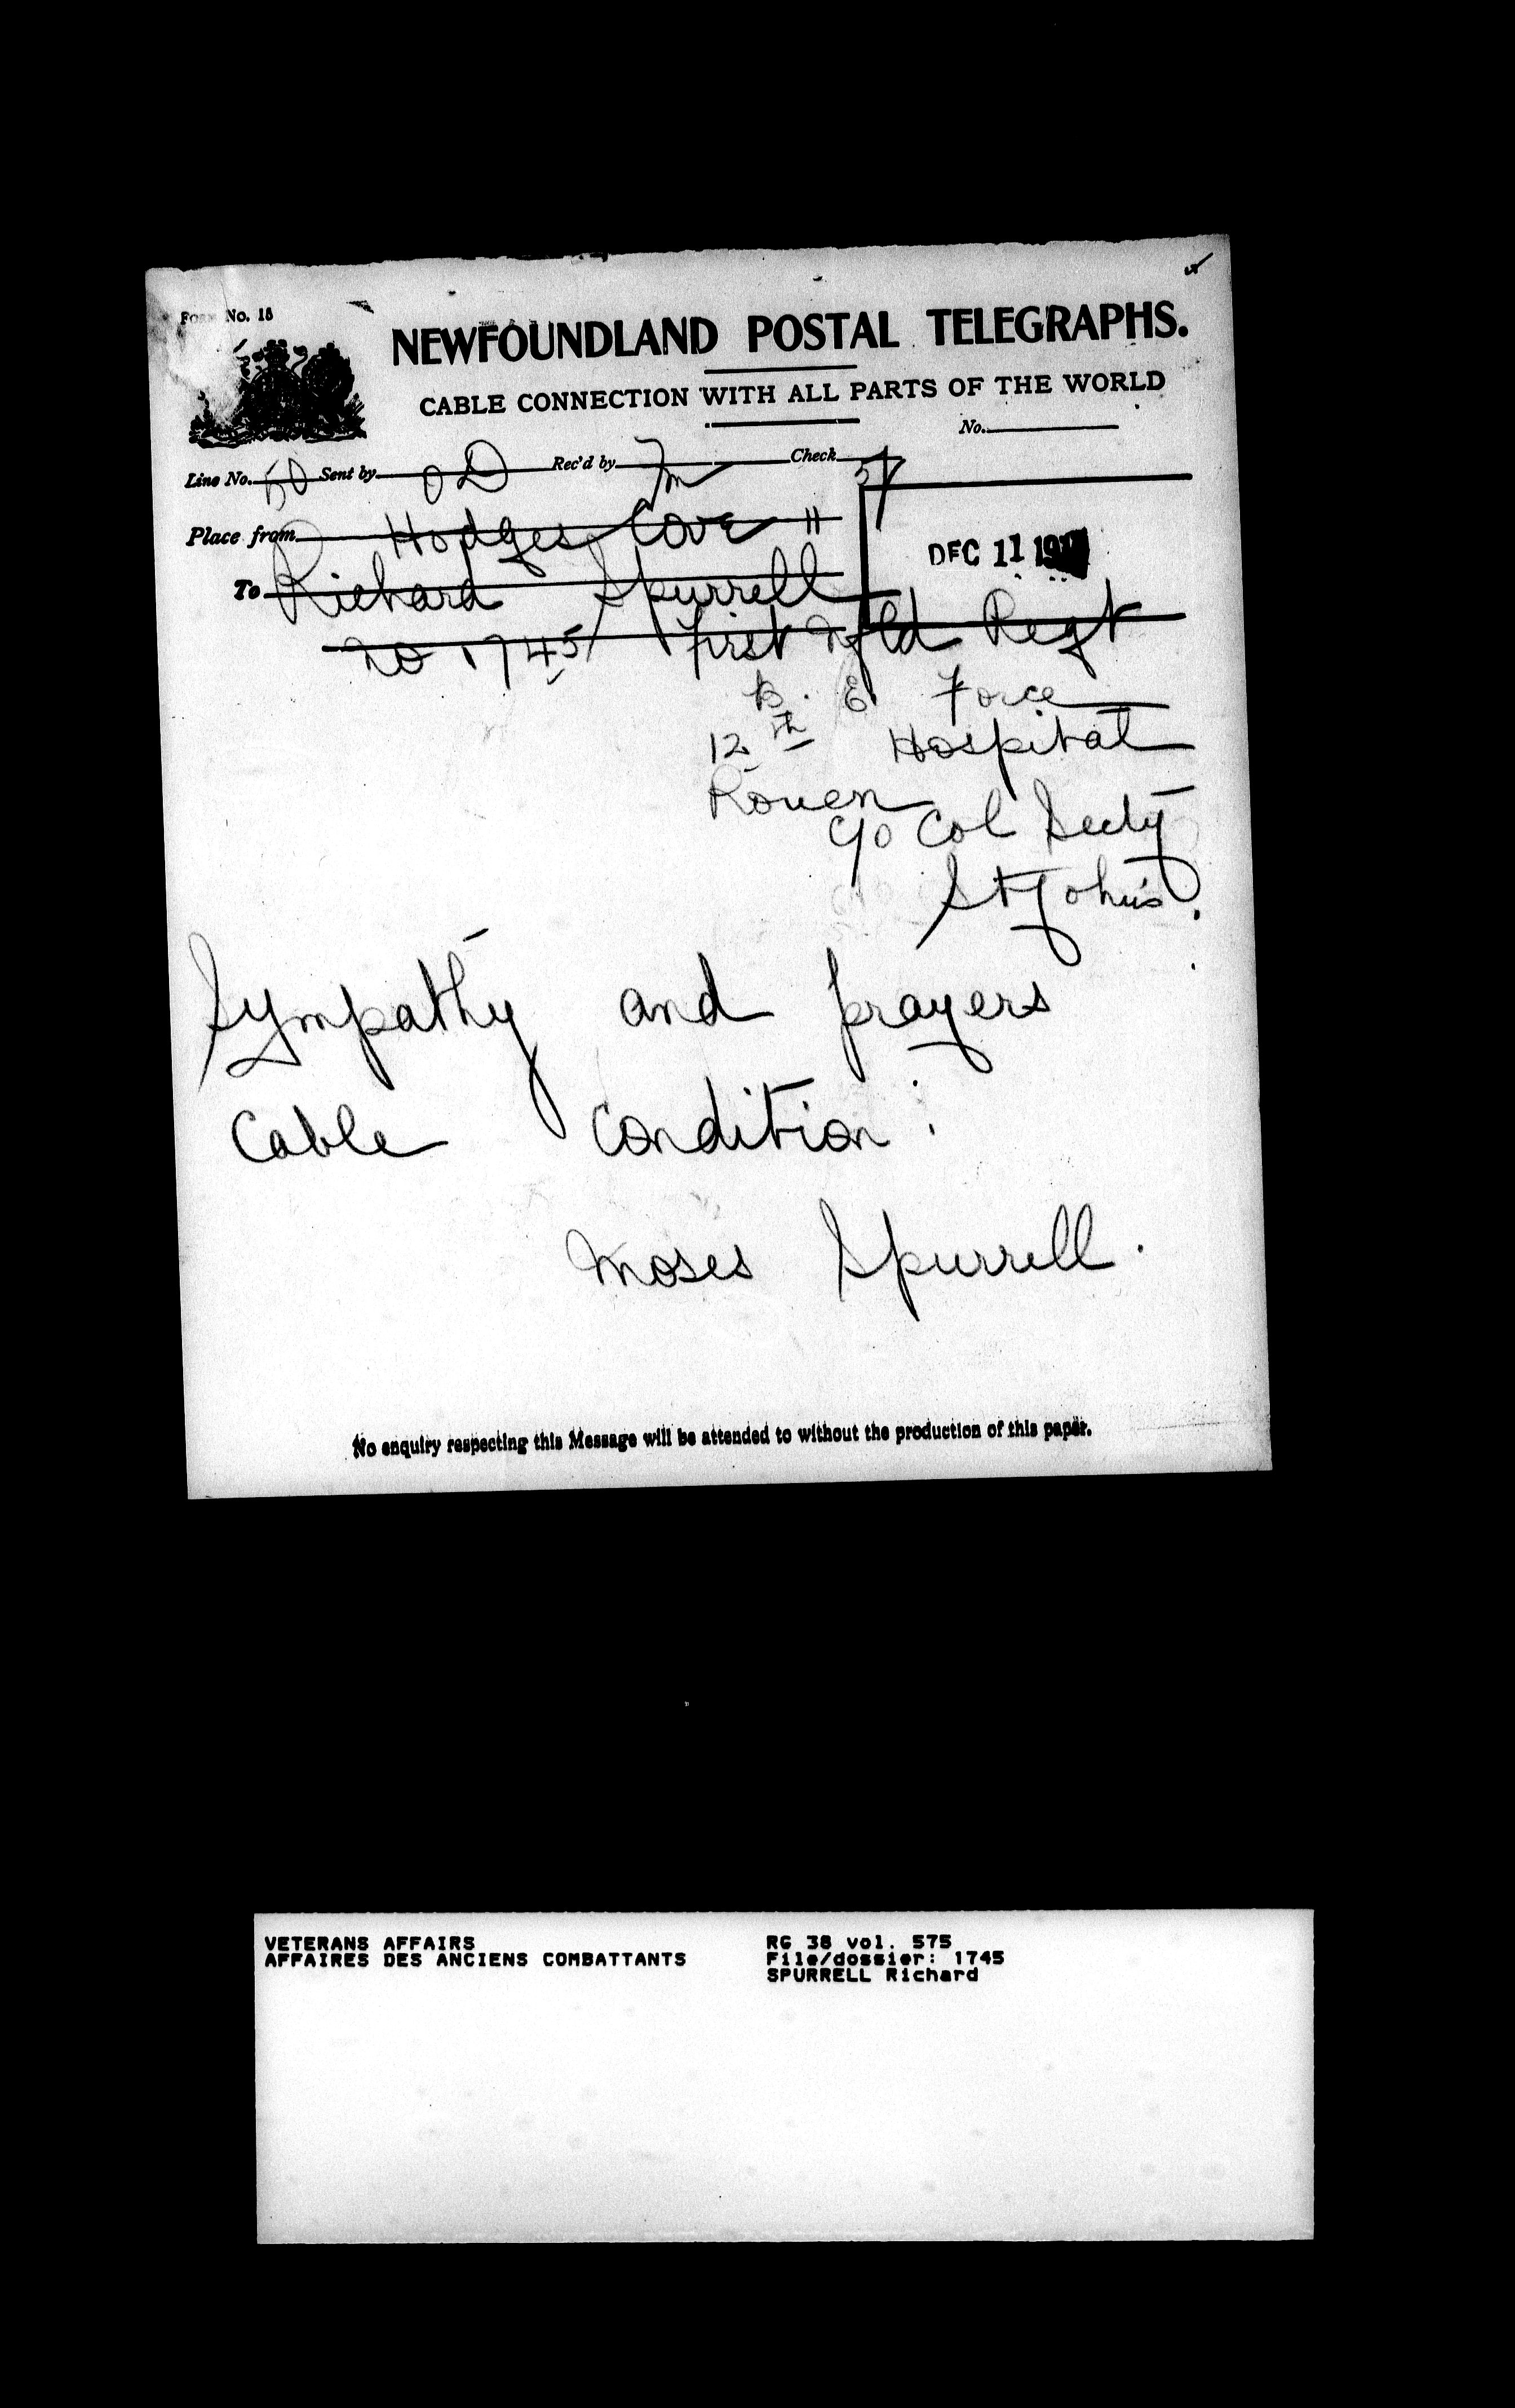 Form No. 18
NEWFOUNDLAND POSTAL TELEGRAPHS.
CABLE CONNECTION WITH ALL PARTS OF THE WORLD
No.
Line No. Sent by Rec'd by Check
Place from Hodges Cove 11
DEC 11
To Richard Spurrell
No 1745 First Nfld Regt
B. E. Force
12th Hospital
Rouen
c/o Col Secty
St John's.
Sympathy and prayers
Cable condition.
Moses Spurrell.
No enquiry respecting this Message will be attended to without the production of this paper.
VETERANS AFFAIRS
AFFAIRES DES ANCIENS COMBATTANTS
RG 38 vol. 575
File/dossier: 1745
SPURRELL Richard